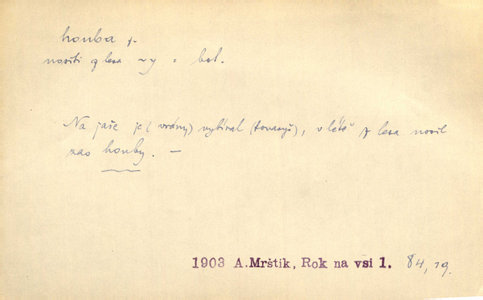 houba f.
nositi z lesa ~y : bot.
Na jaře je (vrány) vybíral (tovaryš), v létě z lesa nosil
zas houby. —
1903 A. Mrštík, Rok na vsi 1. 84, 19.